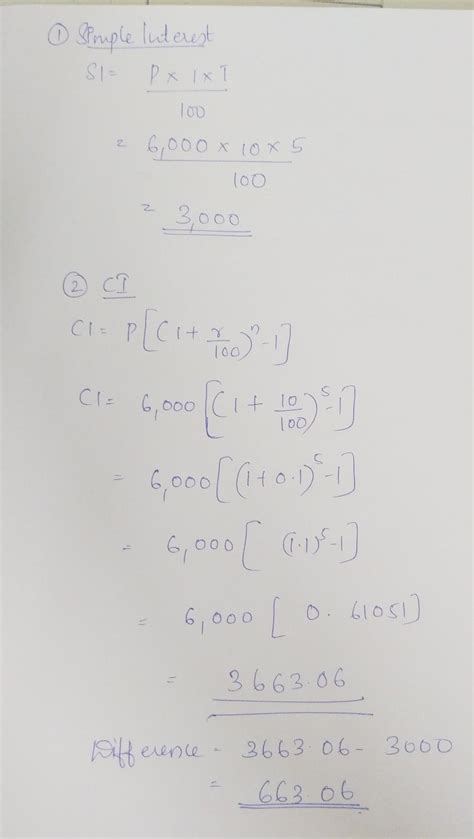 ① Simple Interest
SI = P × I × T
100
= 6,000 × 10 × 5
100
= 3,000
② CI
CI = P[(1 + r/100)^n - 1]
CI = 6,000 [(1 + 10/100)^5 - 1]
= 6,000 [(1 + 0.1)^5 - 1]
= 6,000 [ (1.1)^5 - 1]
= 6,000 [ 0.61051]
= 3663.06
Difference - 3663.06 - 3000
= 663.06